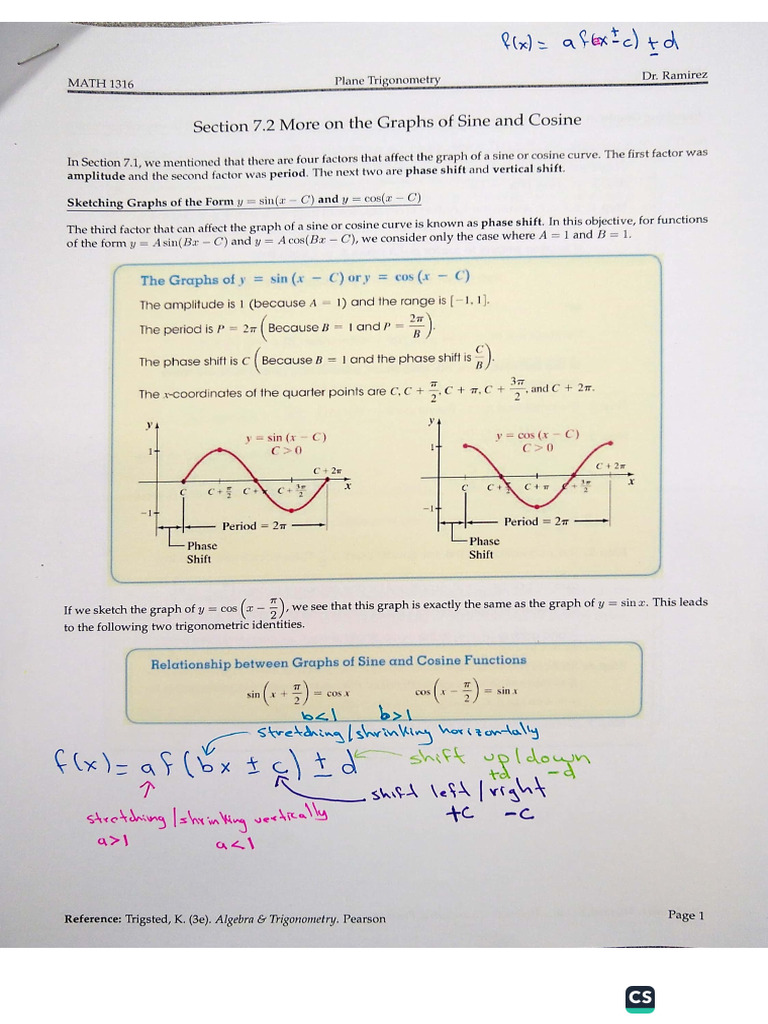 f(x) = a f(x ± c) ± d
MATH 1316 Plane Trigonometry Dr. Ramirez
Section 7.2 More on the Graphs of Sine and Cosine
In Section 7.1, we mentioned that there are four factors that affect the graph of a sine or cosine curve. The first factor was
amplitude and the second factor was period. The next two are phase shift and vertical shift.
Sketching Graphs of the Form y = sin(x − C) and y = cos(x − C)
The third factor that can affect the graph of a sine or cosine curve is known as phase shift. In this objective, for functions
of the form y = A sin(Bx − C) and y = A cos(Bx − C), we consider only the case where A = 1 and B = 1.
The Graphs of y = sin (x − C) or y = cos (x − C)
The amplitude is 1 (because A = 1) and the range is [−1, 1].
The period is P = 2π (Because B = 1 and P = 2π/B).
The phase shift is C (Because B = 1 and the phase shift is C/B).
The x-coordinates of the quarter points are C, C + π/2, C + π, C + 3π/2, and C + 2π.
y y
y = sin (x − C) y = cos (x − C)
1 C > 0 1 C > 0
C + 2π C + 2π
x x
C C + π/2 C + π C + 3π/2 C C + π/2 C + π C + 3π/2
−1 −1
Period = 2π Period = 2π
Phase Phase
Shift Shift
If we sketch the graph of y = cos (x − π/2), we see that this graph is exactly the same as the graph of y = sin x. This leads
to the following two trigonometric identities.
Relationship between Graphs of Sine and Cosine Functions
sin (x + π/2) = cos x cos (x − π/2) = sin x
b<1 b>1
stretching/shrinking horizontally
f(x) = a f(bx ± c) ± d shift up/down
+d −d
shift left/right
+c −c
stretching/shrinking vertically
a>1 a<1
Reference: Trigsted, K. (3e). Algebra & Trigonometry. Pearson Page 1
CS